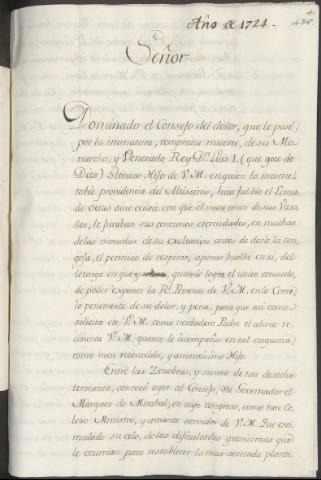 Año de 1724.
4.
436.
Señor
Dominado el Consejo del dolor, que le pesè,
por la immatura, temprana muerte, de su Mo-
narcha, y Venerado Rey Dn. Luis I. (que goze de
Dios) Glorioso Hijo de V.M. en quien la inscru-
table providencia del Altissimo, hizo falible el Lema
de ortus sine ocasu. con que el inato amor de sus Vasa
llos, le juraban sus corazones eternidades, en muchas
de las monedas de su exaltacion. antes de darle la con-
goja, el permiso de respirar, apenas buelbe en si, del
letargo en que quando logra el unico consuelo,
de poder exponer à la Rl. Persona de V.M. en la Corte,
lo penetrante de su dolor, y pena, para que asi como
solicita en V.M. como verdadero Padre el alivio re-
conozca V.M. quanto le acompaña en tal angustia,
como bien reconocido, y amantissimo Hijo.
Entre las Zozobras, y sustos de tan desecha
tormenta, convocò ayer al Consejo, su Governador el
Marques de Mirabal, en cuyo congreso, como tan Ce-
loso Ministro, y amante servidor de V.M. Fue esti-
mulado su celo, de las dificultades gravissimas que
le ocurrian, para restablecer la mas acertada planta